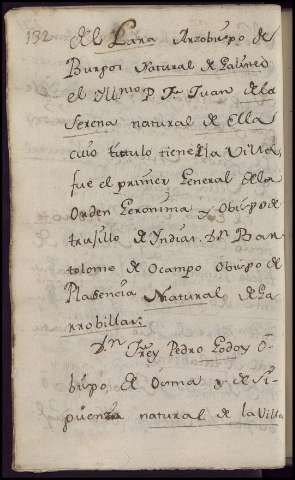 132 del Lara Arzobispo de
Burgos Natural de Galindo
el Illmo P Fr Juan de la
Serena natural de Ella
cuio titulo tiene la Villa,
fue el primer General de la
Orden Geronima y Obispo de
trujillo de Yndias. Dn Bar
tolome de Ocampo Obispo de
Plasencia Natural de Ga
rrobillas;
Dn Frey Pedro Godoy O
bispo de Osma y de Si
guenza natural de la Villa